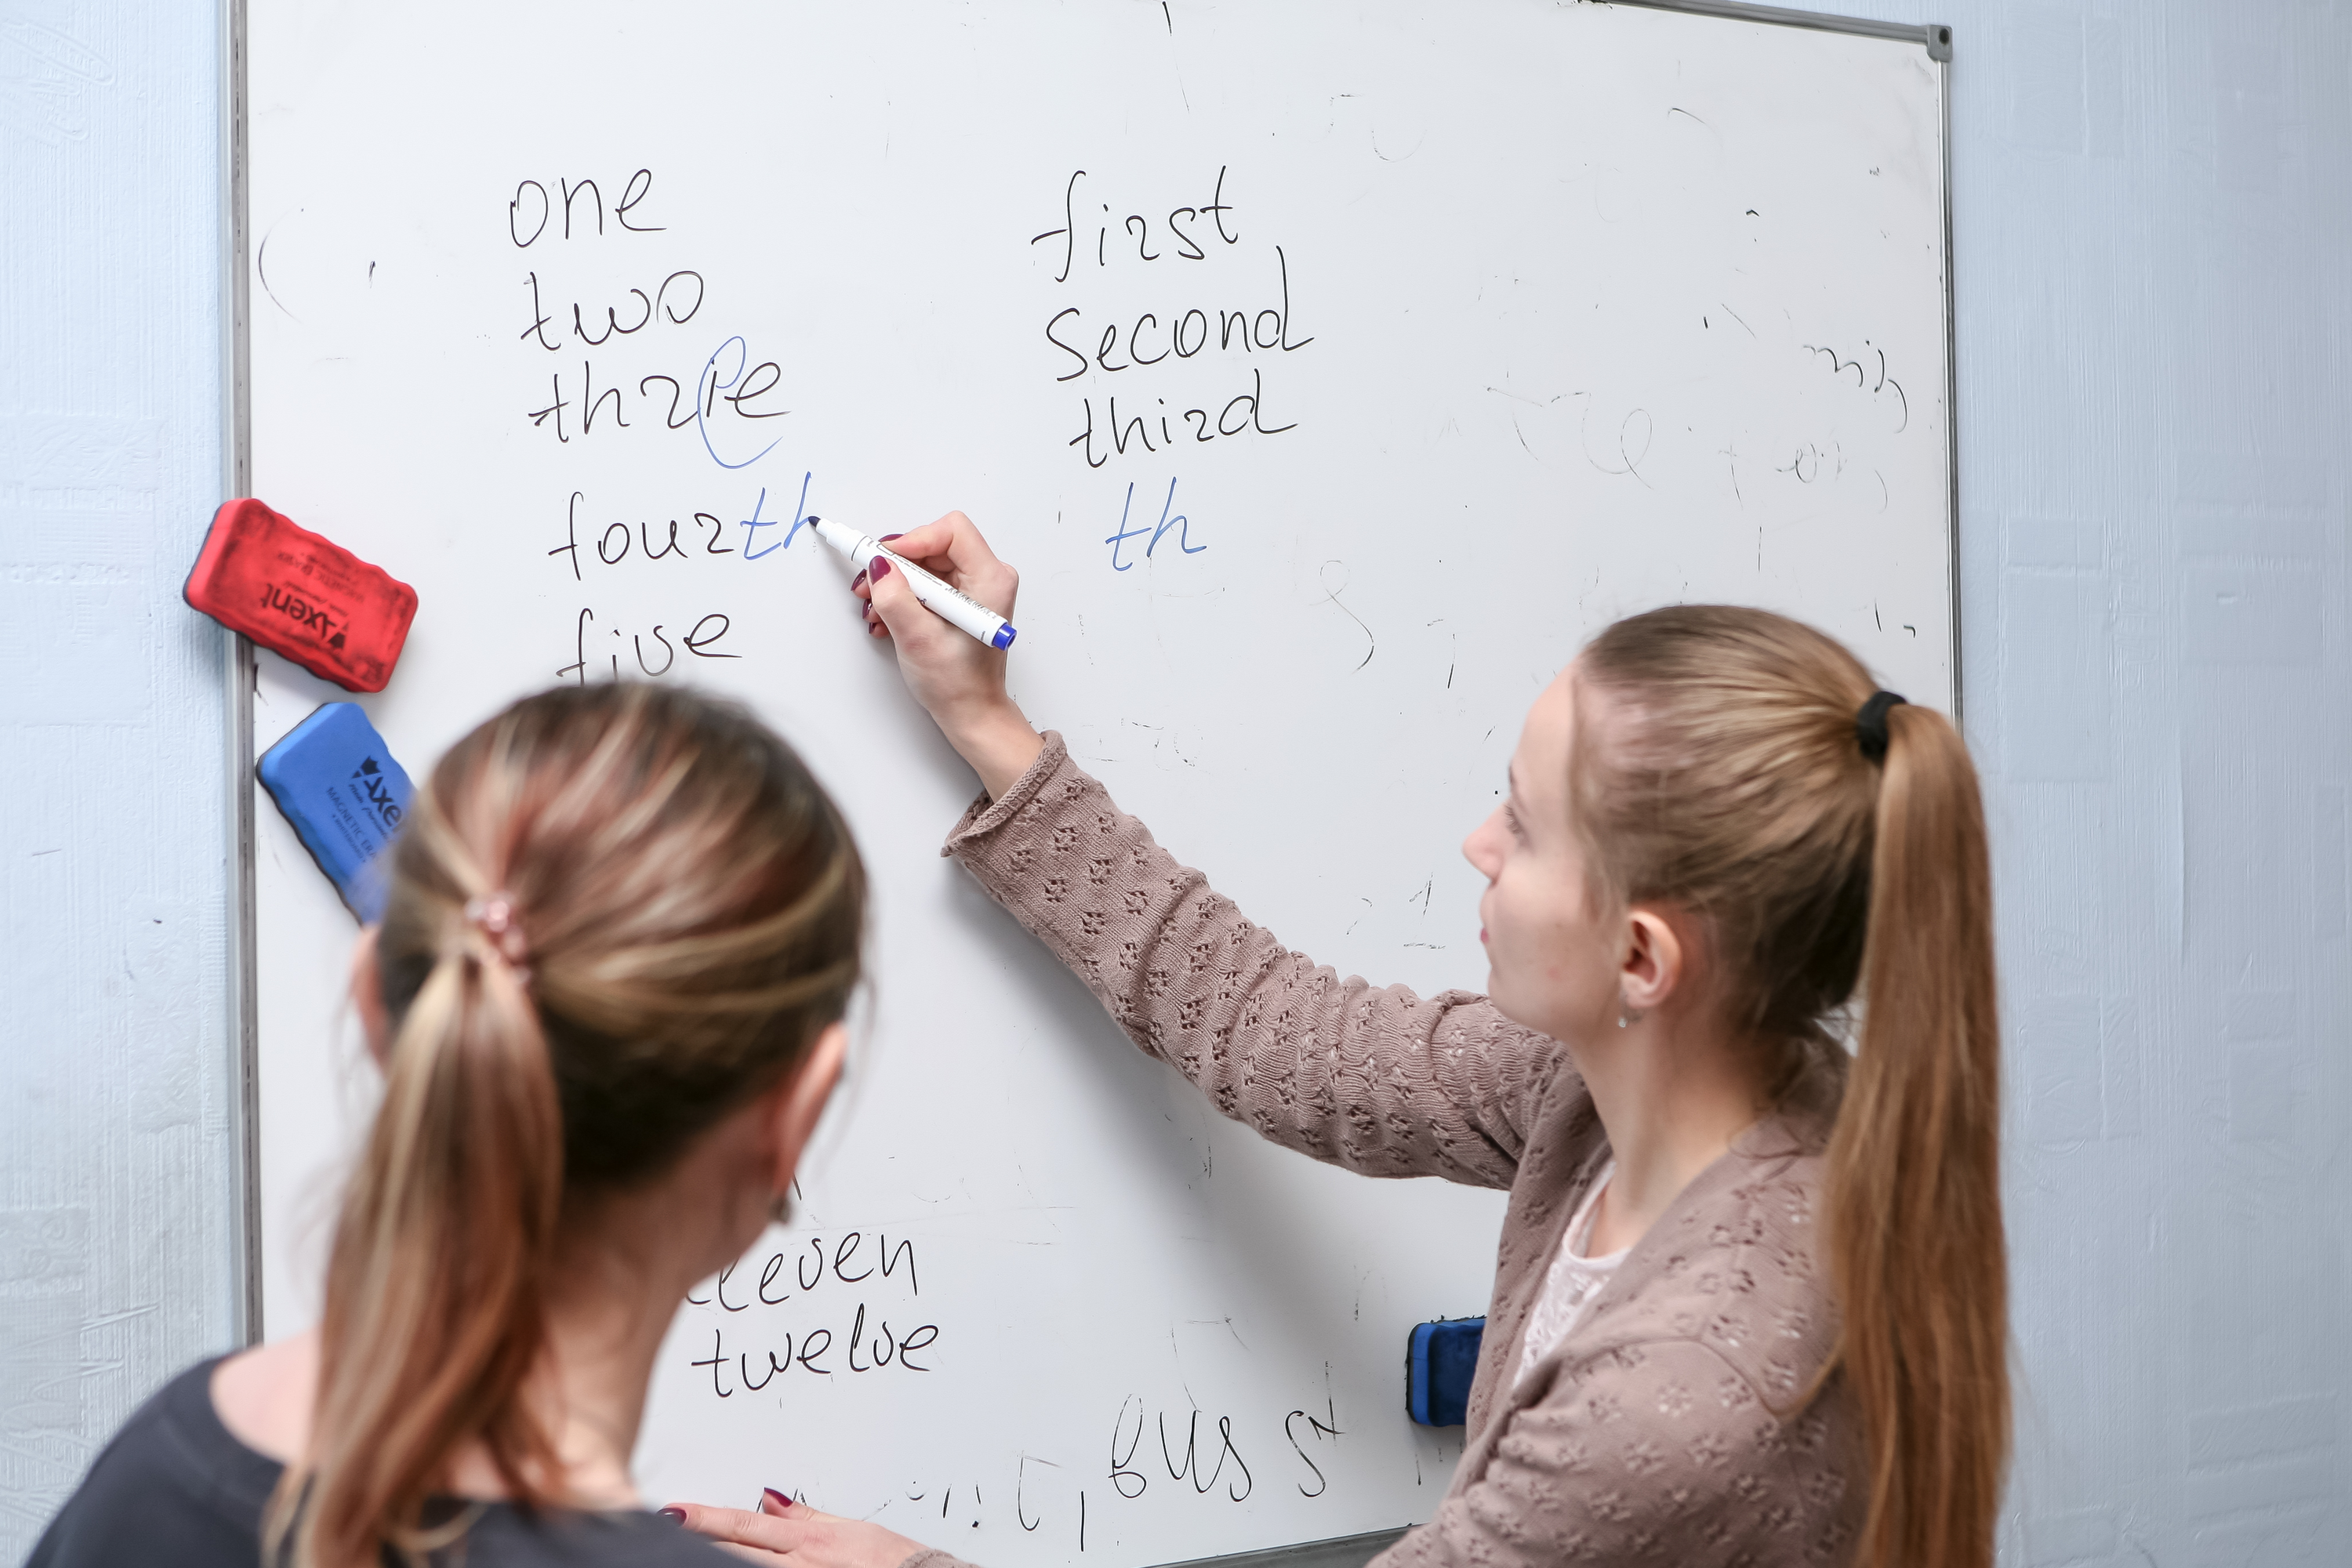 one
two
three
fourth
five
first
second
third
th
Axent
Axen
MAGNETIC
eleven
twelve
bus st